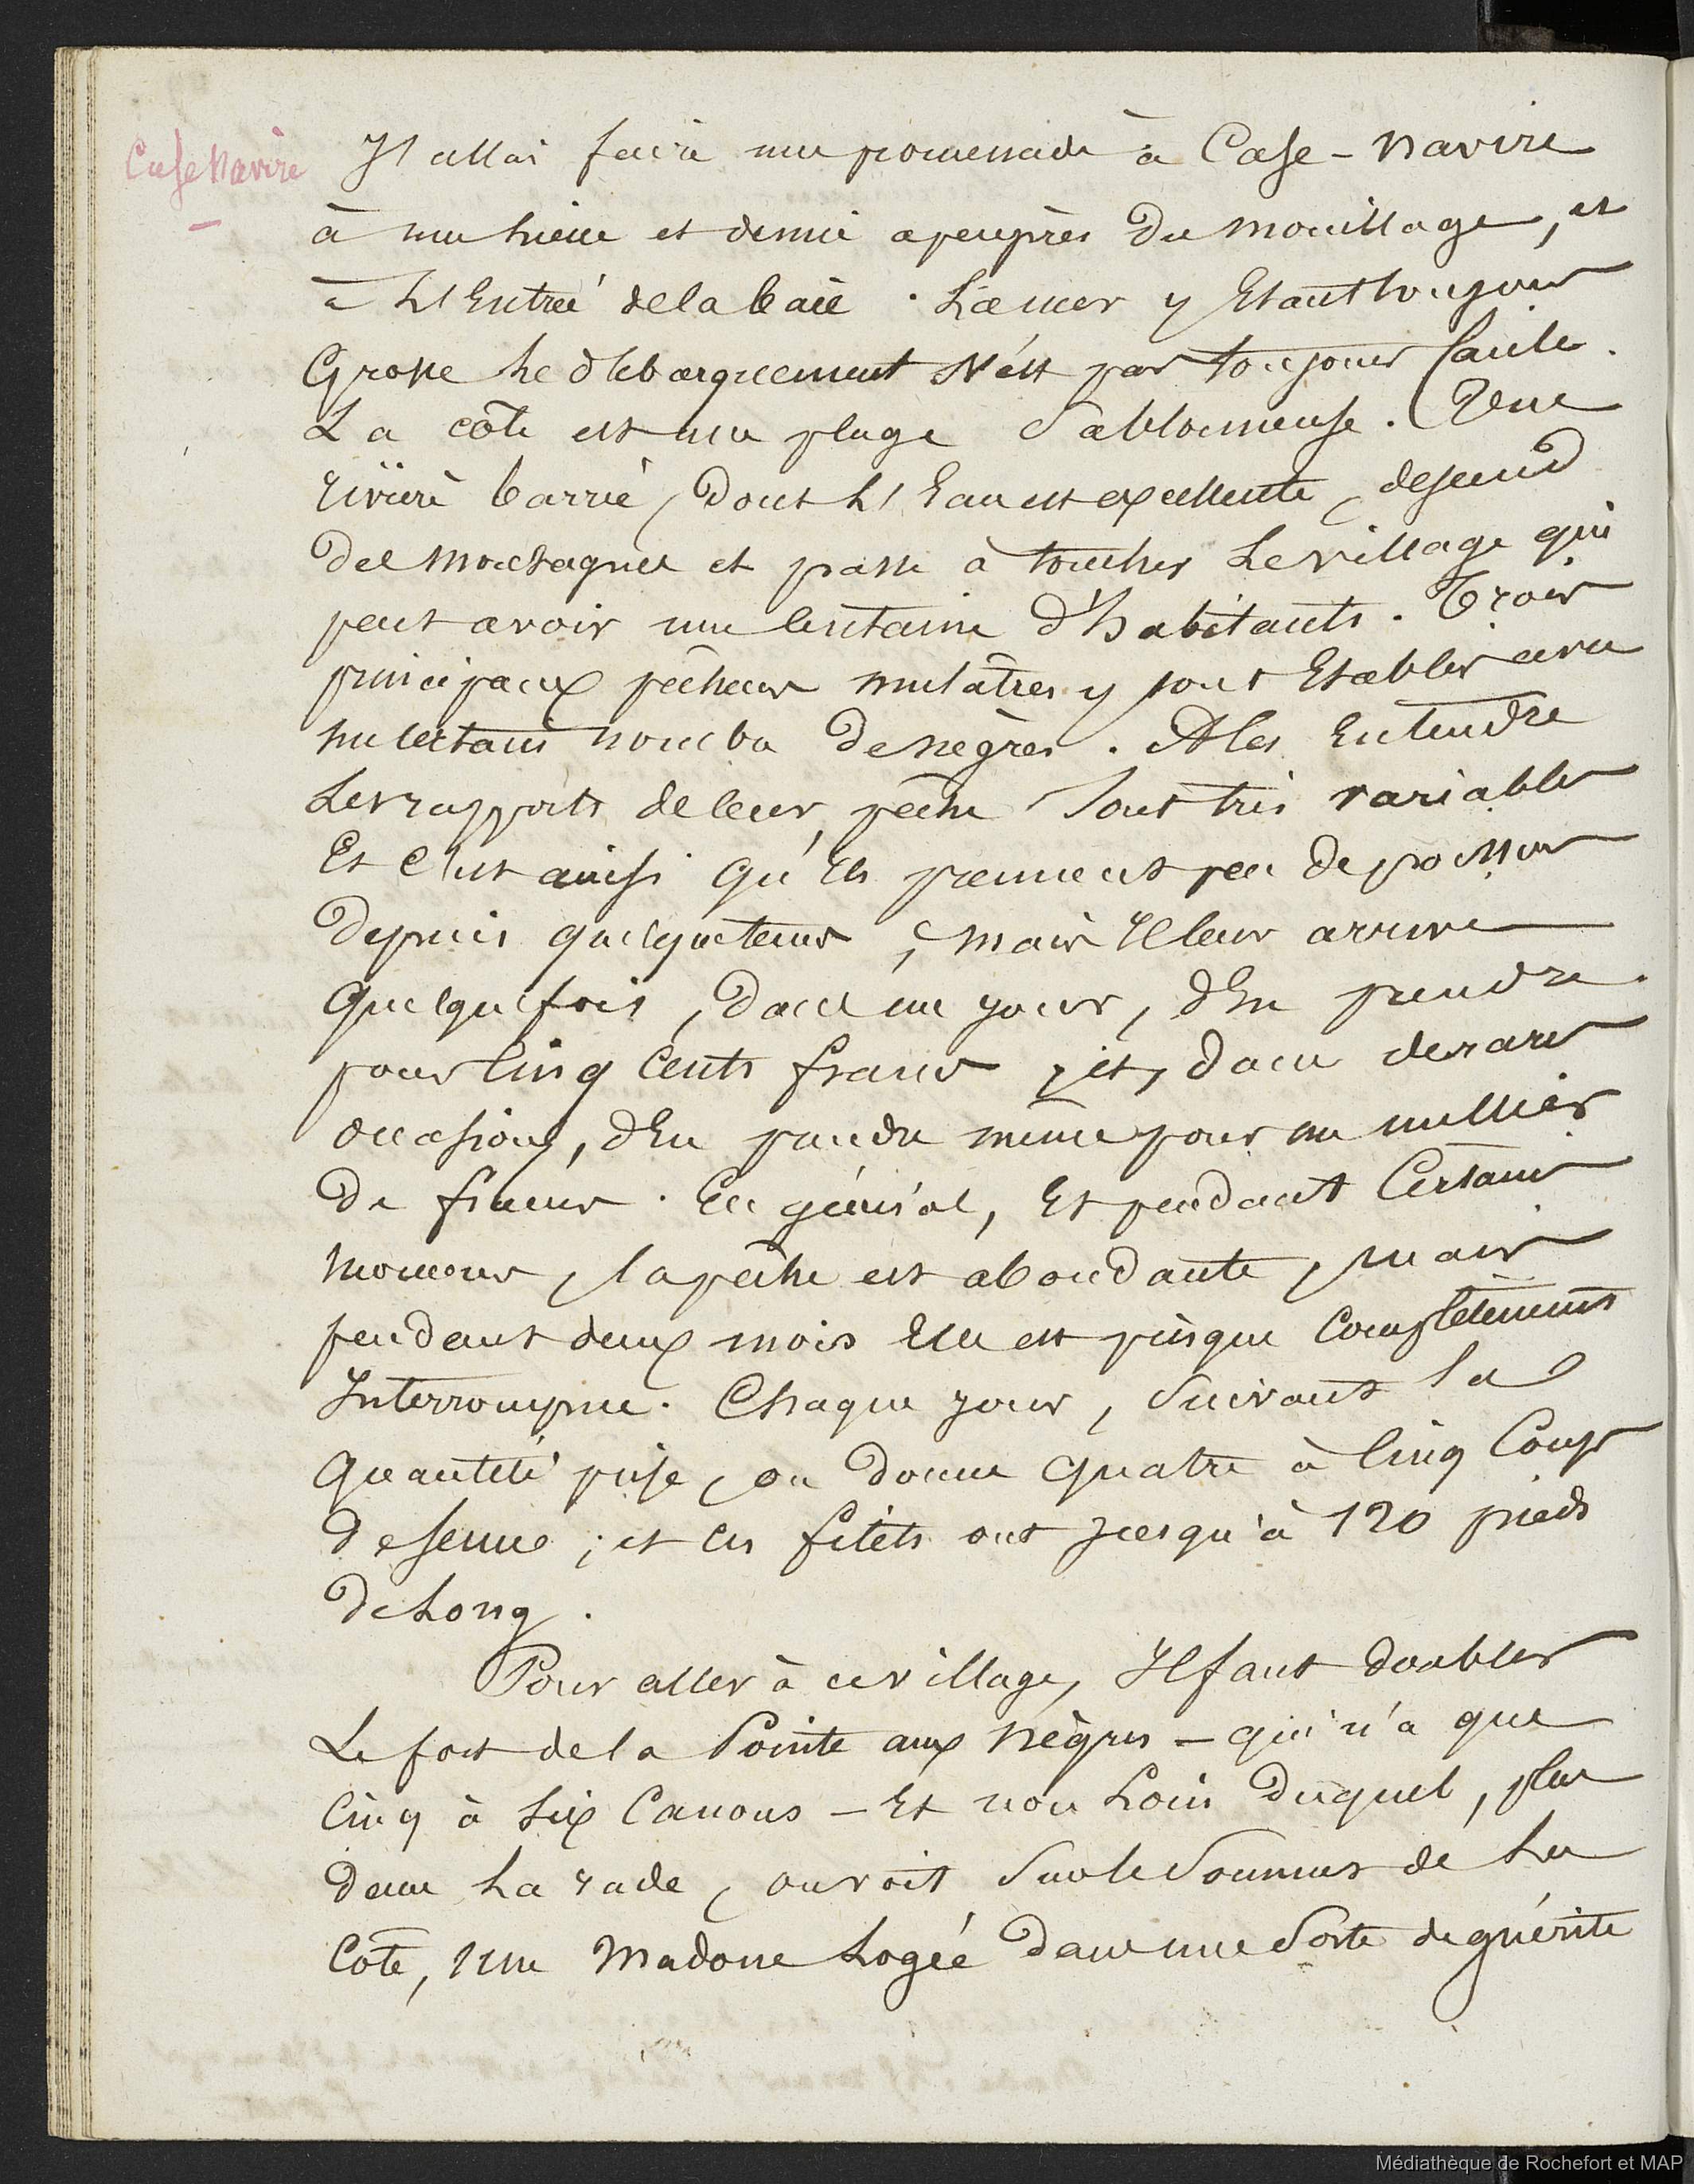 Case Navire
J'allai faire une promenade à Case-Navire
à une lieue et demie apeuprès du mouillage, et
à L'Entrée de la baie. La mer y Etant toujours
Grosse le débarquement N'est pas toujours facile.
La côte est une plage Sablonneuse. Une
rivière barrée, dont L'Eau est excellente, descend
des montagnes et passe à toucher Le village qui
peut avoir une Centaine d'habitants. Trois
principaux pêcheurs mulâtres y sont Etablis avec
un certain nombre de nègres. A les Entendre
Les rapports de leur pêche Sont très variables
Et c'est ainsi qu'ils prennent peu de poisson
Depuis quelque tems, mais Il leur arrive
Quelquefois, Dans un jour, d'En prendre
pour Cinq Cents francs, et, dans de rares
occasions, d'En prendre même pour un millier
De francs. En général, Et pendant Certains
momens, la pêche est abondante, mais
pendant deux mois Elle est presque Complètement
Interrompue. Chaque jour, Suivant la
Quantité prise, on Donne quatre à Cinq Coups
De senne ; et les filets ont jusqu'à 120 pieds
De Long.
Pour aller à ce village, Il faut doubler
Le fort de la Pointe aux Nègres - qui n'a que
Cinq à Six Canons - Et non Loin Duquel, plus
dans La rade, on voit Sur le Sommet de La
Côte, Une Madone Logée Dans une Sorte de guérite
Médiathèque de Rochefort et MAP